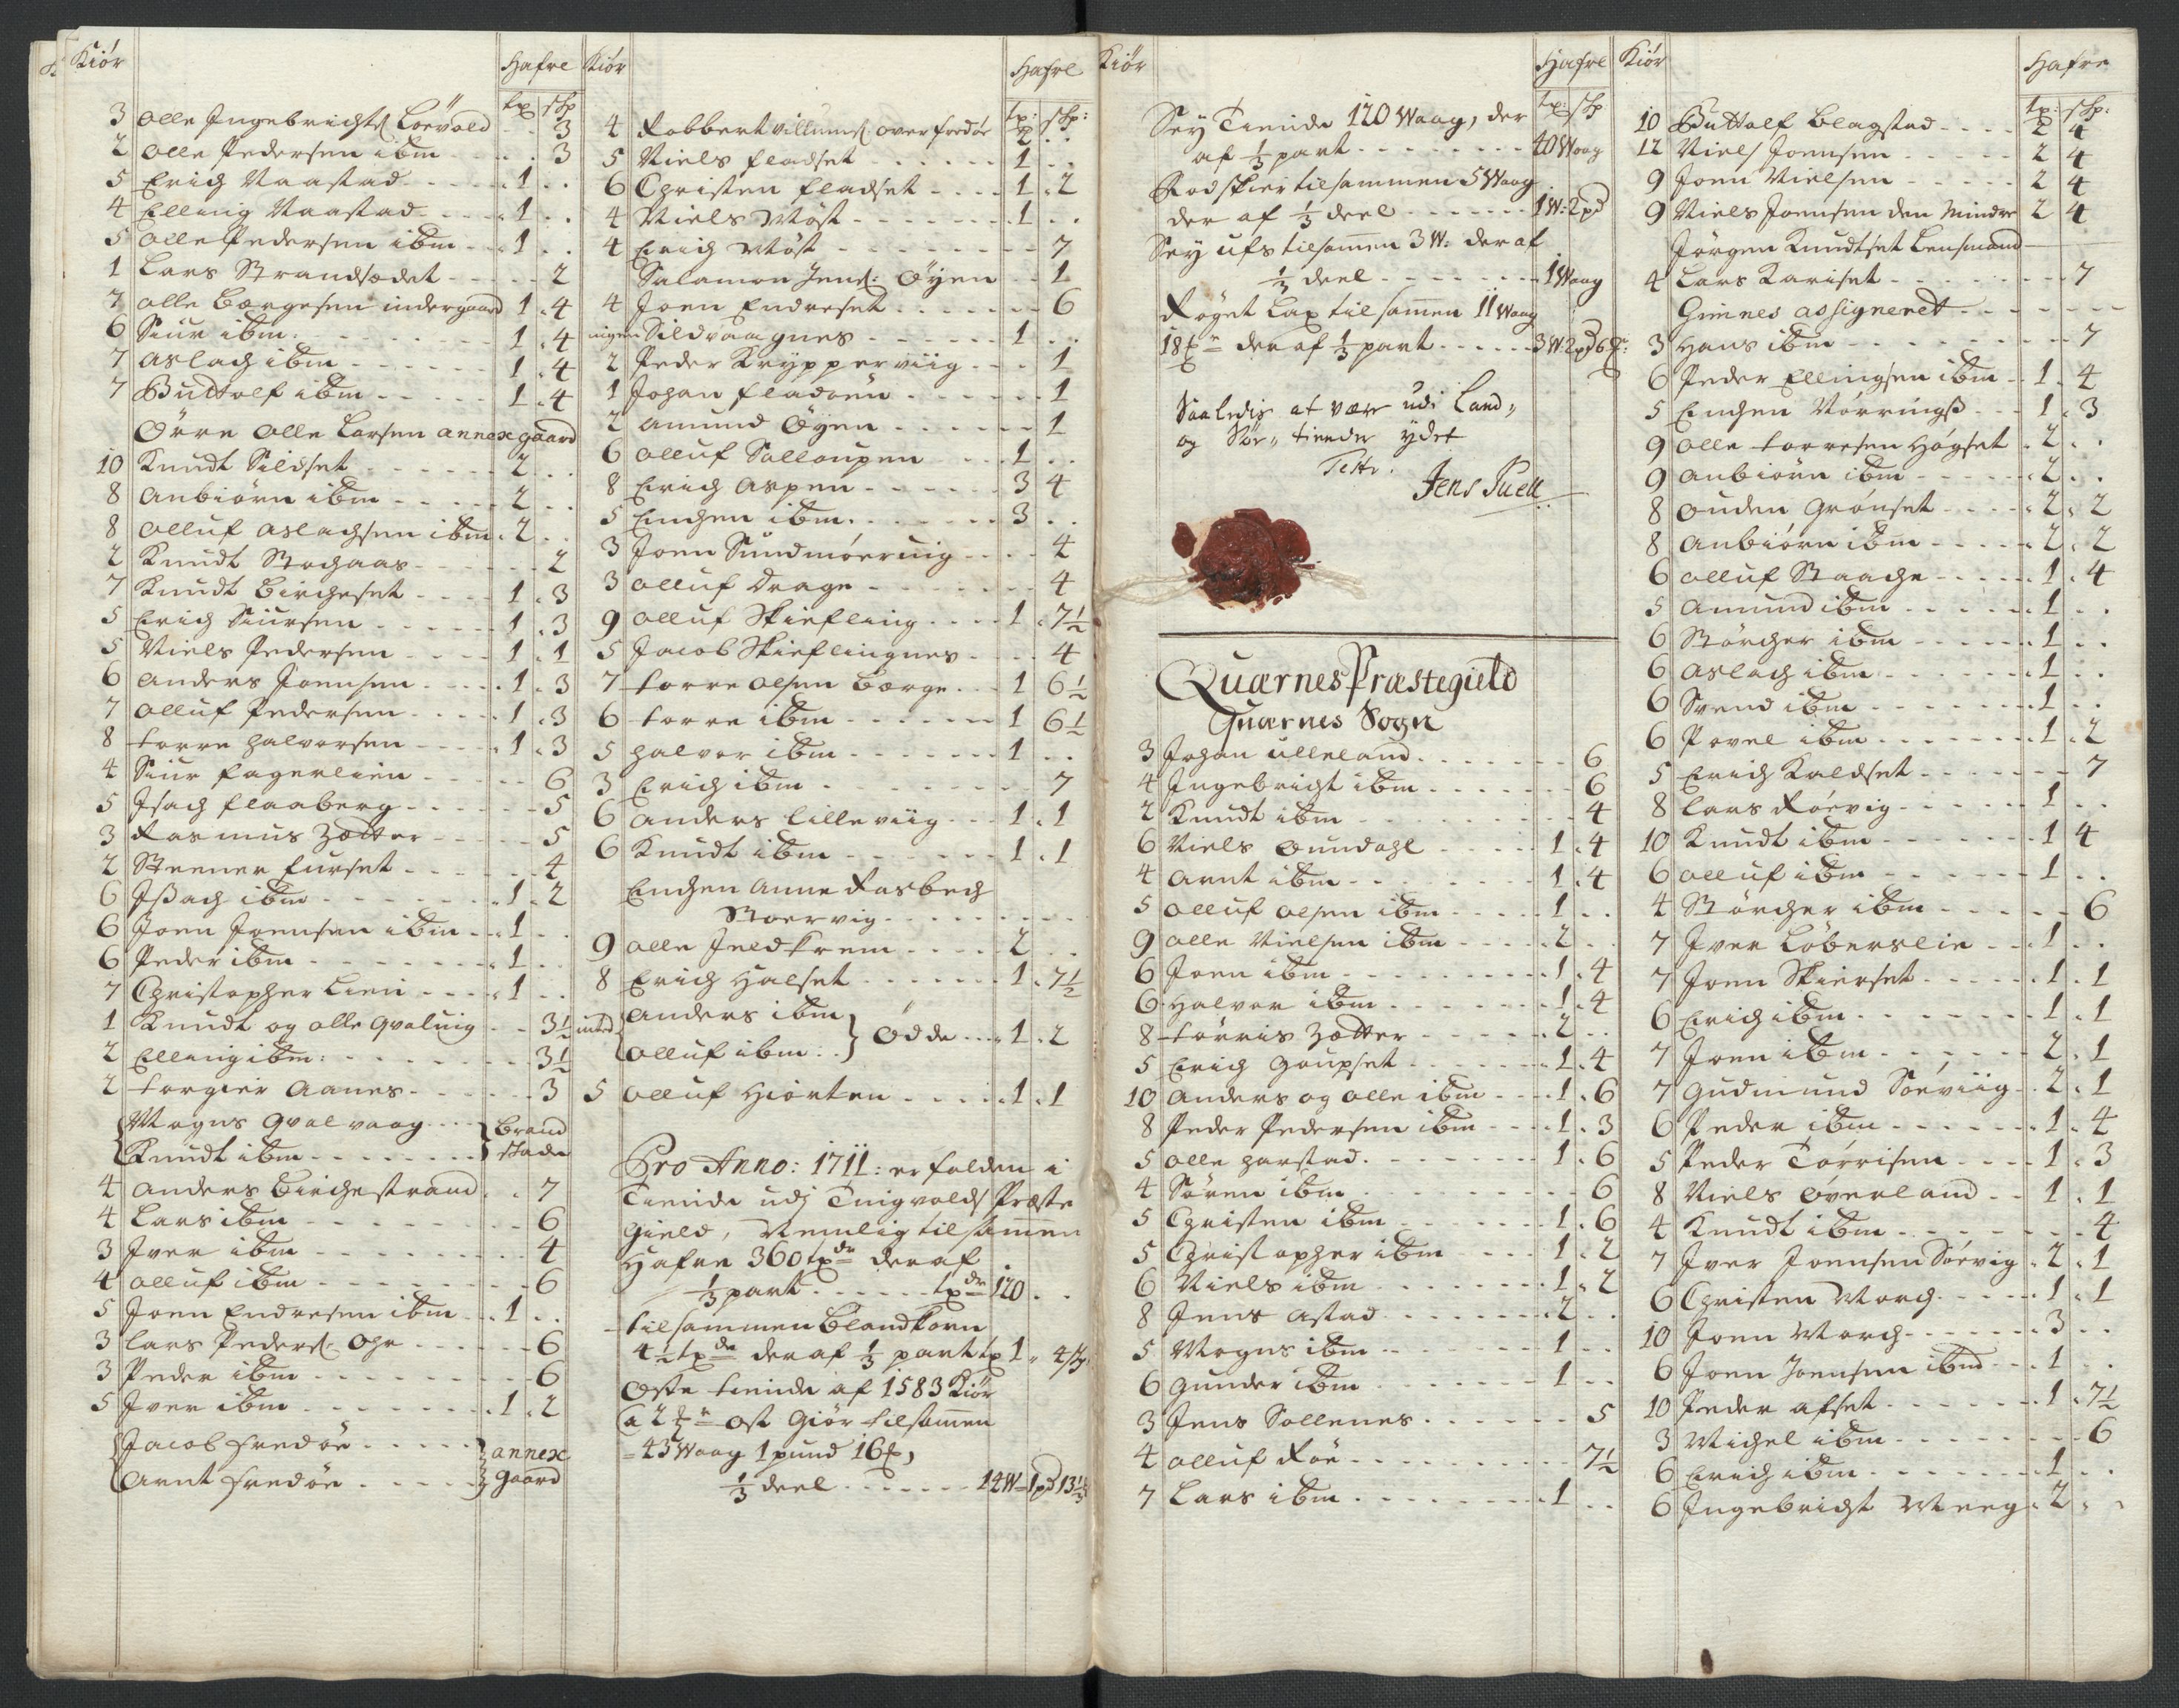 Kiör Hafre
tx shp
3 Olle Ingebrichts Löevold - - 3
2 Olle Pedersen ibm - - 3
5 Erich Naastad - - 1 . .
4 Elling Naastad - - 1 . .
5 Olle Pedersen ibm - - 1 . .
1 Lars Strandsædet - - 2
7 Olle Børgesen indergaard 1 . 4
6 Siur ibm - - 1 . 4
7 Aslach ibm - - 1 . 4
7 Buttolf ibm - - 1 . 4
Örre Olle Larsen annex gaard
10 Knudt Sildset - - 2 . .
8 Anbiörn ibm - - 2 . .
8 Olluf Aslachsen ibm . 2 . .
2 Knudt Stochaas - - 2
7 Knudt Bircheset - - 1 . 3
5 Erich Siursen - - 1 . 3
5 Niels Pedersen - - 1 . 1
6 Anders Joensen - - 1 . 3
7 Olluf Pedersen - - 1 . 3
8 Torre Halvorsen - - 1 . 3
4 Siur Fagerlien - - 6
5 Isach Flaaberg - - 5
3 Rasmus Zætter - - 5
2 Steener Furset - - 4
6 Issach ibm - - 1 . 2
6 Joen Joensen ibm - - 1 . .
6 Peder ibm - - 1 . .
7 Christopher Lien - - 1 . .
1 Knudt og Olle Qvaluig - - 3½
2 Elling ibm: - - 3½
2 Torgier Aanes - - 3
Mogns Qvalvaag - - brand
Knudt ibm - - stade
4 Anders Birchestrand . . 7
4 Lars ibm - - 6
3 Iver ibm - - 4
4 Olluf ibm - - 6
5 Joen Endresen ibm - - 1 . .
3 Lars Peders: Ohr - - 6
3 Peder ibm - - 6
5 Iver ibm - - 1 . 2
Jacob Fredöe - - annex
Arnt Fredöe - - gaard
Kiör Hafre
tx: shp:
4 Robbert Villums: Over Fredöe 2 . .
5 Niels Fladset - - 1 . .
6 Christen Fladset - - 1 . 2
4 Niels Möst - - 1 . .
4 Erich Möst - - 7
Salamon Jens: Öyen - - 1
4 Joen Endreset - - 6
ingen Sildvaagnes - - 1 . .
2 Peder Krypperviig - - 1
1 Johan Fladöen - - 1
2 Amund Öyen - - 1
6 Olluf Solloupen - - 1 . .
8 Erich Aspen - - 3 4
5 Enchen ibm - - 3 . .
3 Joen Sundmöeruig - - 4
3 Olluf Drage - - 4
9 Olluf Skiefling - - 1 . 7½
5 Jacob Skieflingnes - - 4
7 Torre Olsen Børge - - 1 6½
6 Torre ibm - - 1 6½
5 Halvor ibm - - 1 . .
3 Erich ibm - - 7
6 Anders Lilleviig - - 1 . 1
6 Knudt ibm - - 1 . 1
Enchen Anne Rasbech
Stoervig - -
9 Olle Jeldkrem - - 2 . .
8 Erich Halset - - 1 . 7½
Anders ibm
Olluf ibm . . } Ödde - - 1 . 2
5 Olluf Hiorten - - 1 . 1
Pro Anno: 1711: er falden i
Tiende udj Tingvolds Præste
gield, Nemlig tilsammen
Hafre 360 txdr deraf
⅓ part - - txdr 120 . .
tilsammen Blandkorn
4½ txdr der af ⅓ part tx 1 " 4
Oste tiende af 1583 Kiör
a 2 ost Giör tilsammen
= 43 Waag 1 pund 16
⅓ deel - - 14 W 1 pd 13⅓
Kiör Hafre
tx: shp.
Sey Tiende 120 Waag, der
af ⅓ part - - 40 Waag
Rodskier tilsammen 5 Waag
der af ⅓ deel - - 1 W: 2 pd
Sey ufs tilsammen 3 W: der af
⅓ deel - - 1 Waag
Röget Lax tilsammen 11 Waag
18 der af ⅓ part - - 3 W 2 pd 6
Saaledis at være udi Land,,
og Söe,, tiender ydet
Test:
Jens Juell
Quærnes Præstegield
Quærnes Sogn
3 Johan Ulleland - - 6
4 Ingebricht ibm - - 6
2 Knudt ibm - - 4
6 Niels Oundahl - - 1 . 4
4 Arnt ibm - - 1 . 4
5 Olluf Olsen ibm - - 1 . .
9 Olle Nielsen ibm - - 2 . .
6 Joen ibm - - 1 . 4
6 Halvor ibm - - 1 . 4
8 Törris Zætter - - 2 . .
5 Erich Goupset - - 1 . 4
10 Anders og Olle ibm - - 1 . 6
8 Peder Pedersen ibm - - 1 . 3
5 Olle Harstad - - 1 . 6
4 Sören ibm - - 6
5 Christen ibm - - 1 . 6
5 Christopher ibm - - 1 . 2
6 Niels ibm - - 1 . 2
8 Jens Astad - - 2 . .
5 Mogns ibm - - 1 . .
6 Gunder ibm - - 1 . .
3 Jens Sollenes - - 5
4 Olluf Röe - - 7½
7 Lars ibm - - 1 . .
Kiör Hafre
tx: shp:
10 Buttolf Blagstad - - 2 4
12 Niels Joensen - - 2 4
9 Joen Nielsen - - 2 4
9 Niels Joensen den Mindre 2 4
Jörgen Knudtset Lensmand
4 Lars Kariset - - 7
Gimnes assigneret - -
3 Hans ibm - - 7
6 Peder Ellingsen ibm - - 1 . 4
5 Enchen Nörringss - - 1 . 3
9 Olle Torresen Högset . 2 . .
9 Anbiörn ibm - - 2 . .
8 Ouden Grönset - - 2 . 2
8 Anbiörn ibm - - 2 . 2
6 Olluf Staache - - 1 . 4
5 Amund ibm - - 1 . .
6 Störcher ibm - - 1 . .
6 Aslach ibm - - 1 . .
6 Svend ibm - - 1 . .
6 Povel ibm - - 1 . 2
5 Erich Kaldset - - 7
8 Lars Röevig - - 1 . .
10 Knudt ibm - - 1 4
6 Olluf ibm - - 1 . .
4 Störcher ibm - - 6
7 Iver Löberslie - - 1 . .
7 Joen Skierset - - 1 . 1
6 Erich ibm - - 1 . 1
7 Joen ibm - - 2 . 1
7 Gudmund Söeviig - 2 . 1
6 Peder ibm - - 1 . 4
5 Peder Törrisen - - 1 . 3
8 Niels Överland - - 1 . 1
4 Knudt ibm - - 4
7 Iver Joensen Söevig . 2 . 1
6 Christen Morch - - 1 . 1
10 Joen Morch - - 3 . .
6 Joen Joensen ibm - - 1 . .
10 Peder Afset - - 1 . 7½
3 Michel ibm - - 6
6 Erich ibm - - 1 . .
6 Ingebricht Meeg . 2 . .